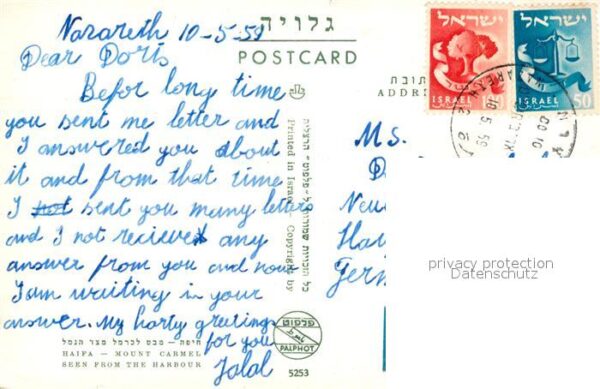 Nazareth 10-5-59
Dear Doris
Befor long time
you sent me letter and
I answered you about
it and from that time
I not sent you many letters
and I not recieve any
answer from you and now
I am waiting in your
answer. My harty greetings
for you
Jalal
גלויה
POSTCARD
כתובת
ADDRE
ישראל
ISRAEL
ישראל
ISRAEL 50
NAZARETH
10.5.59
M S.
D
Neu
Ha
Germ
privacy protection
Datenschutz
Printed in Israel - Copyright by
כל הזכויות שמורות ל"פלפוט" הרצליה
חיפה – מבט לכרמל מצד הנמל
HAIFA – MOUNT CARMEL
SEEN FROM THE HARBOUR
פלפוט
PALPHOT
5253